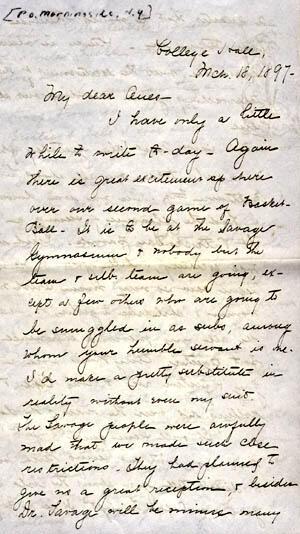 [P.O. Morningside, N.Y.]
College Hall,
Mch. 18, 1897-
My dear Ones-
I have only a little
while to write to-day - Again
there is great excitement up here
over our second game of Basket-
Ball - It is to be at the Savage
Gymnasium & nobody but the
team & sub. team are going, ex-
cept a few others who are going to
be smuggled in as subs, among
whom your humble servant is one.
I'd make a pretty substitute in
reality without even my suit
The Savage people were awfully
mad that we made such close
restrictions - They had planned to
give us a great reception, & besides
Dr. Savage will be minus many